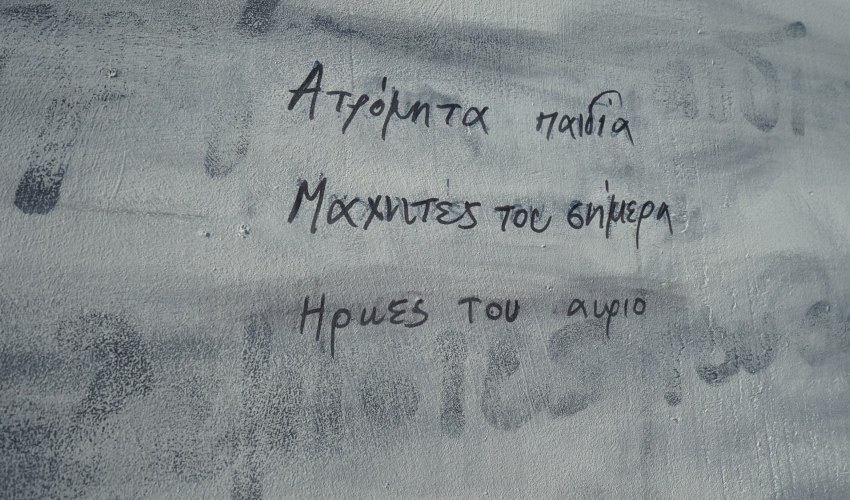 Ατρόμητα παιδια
Μαχητές του σήμερα
Ηρωες του αυριο